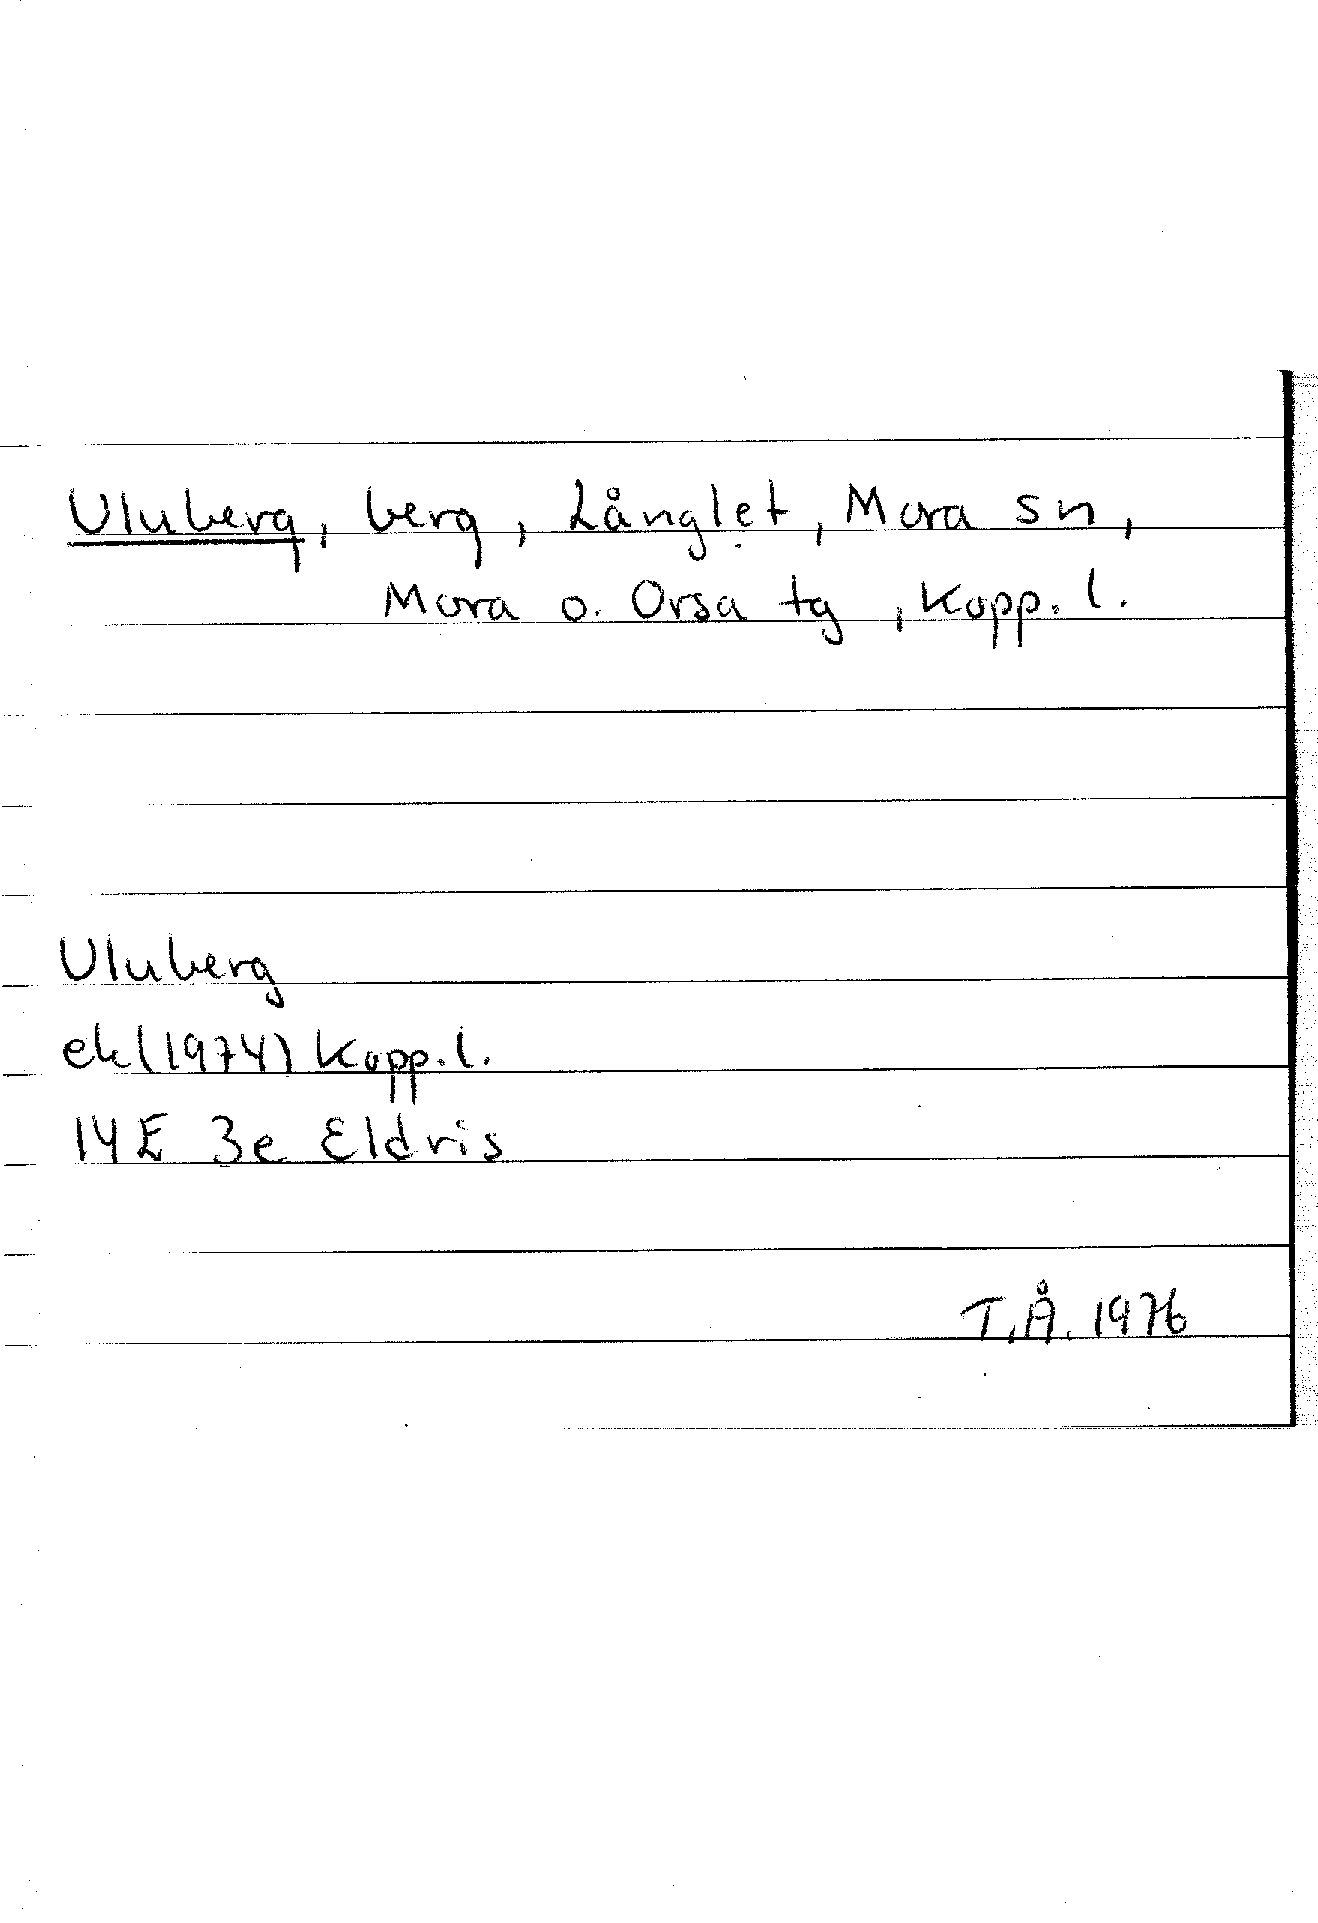 Uluberg, berg, Långlet, Mora sn,
Mora o. Orsa tg, Kopp. l.
Uluberg
ek (1974) Kopp. l.
14E 3e Eldris
T.Å. 1976